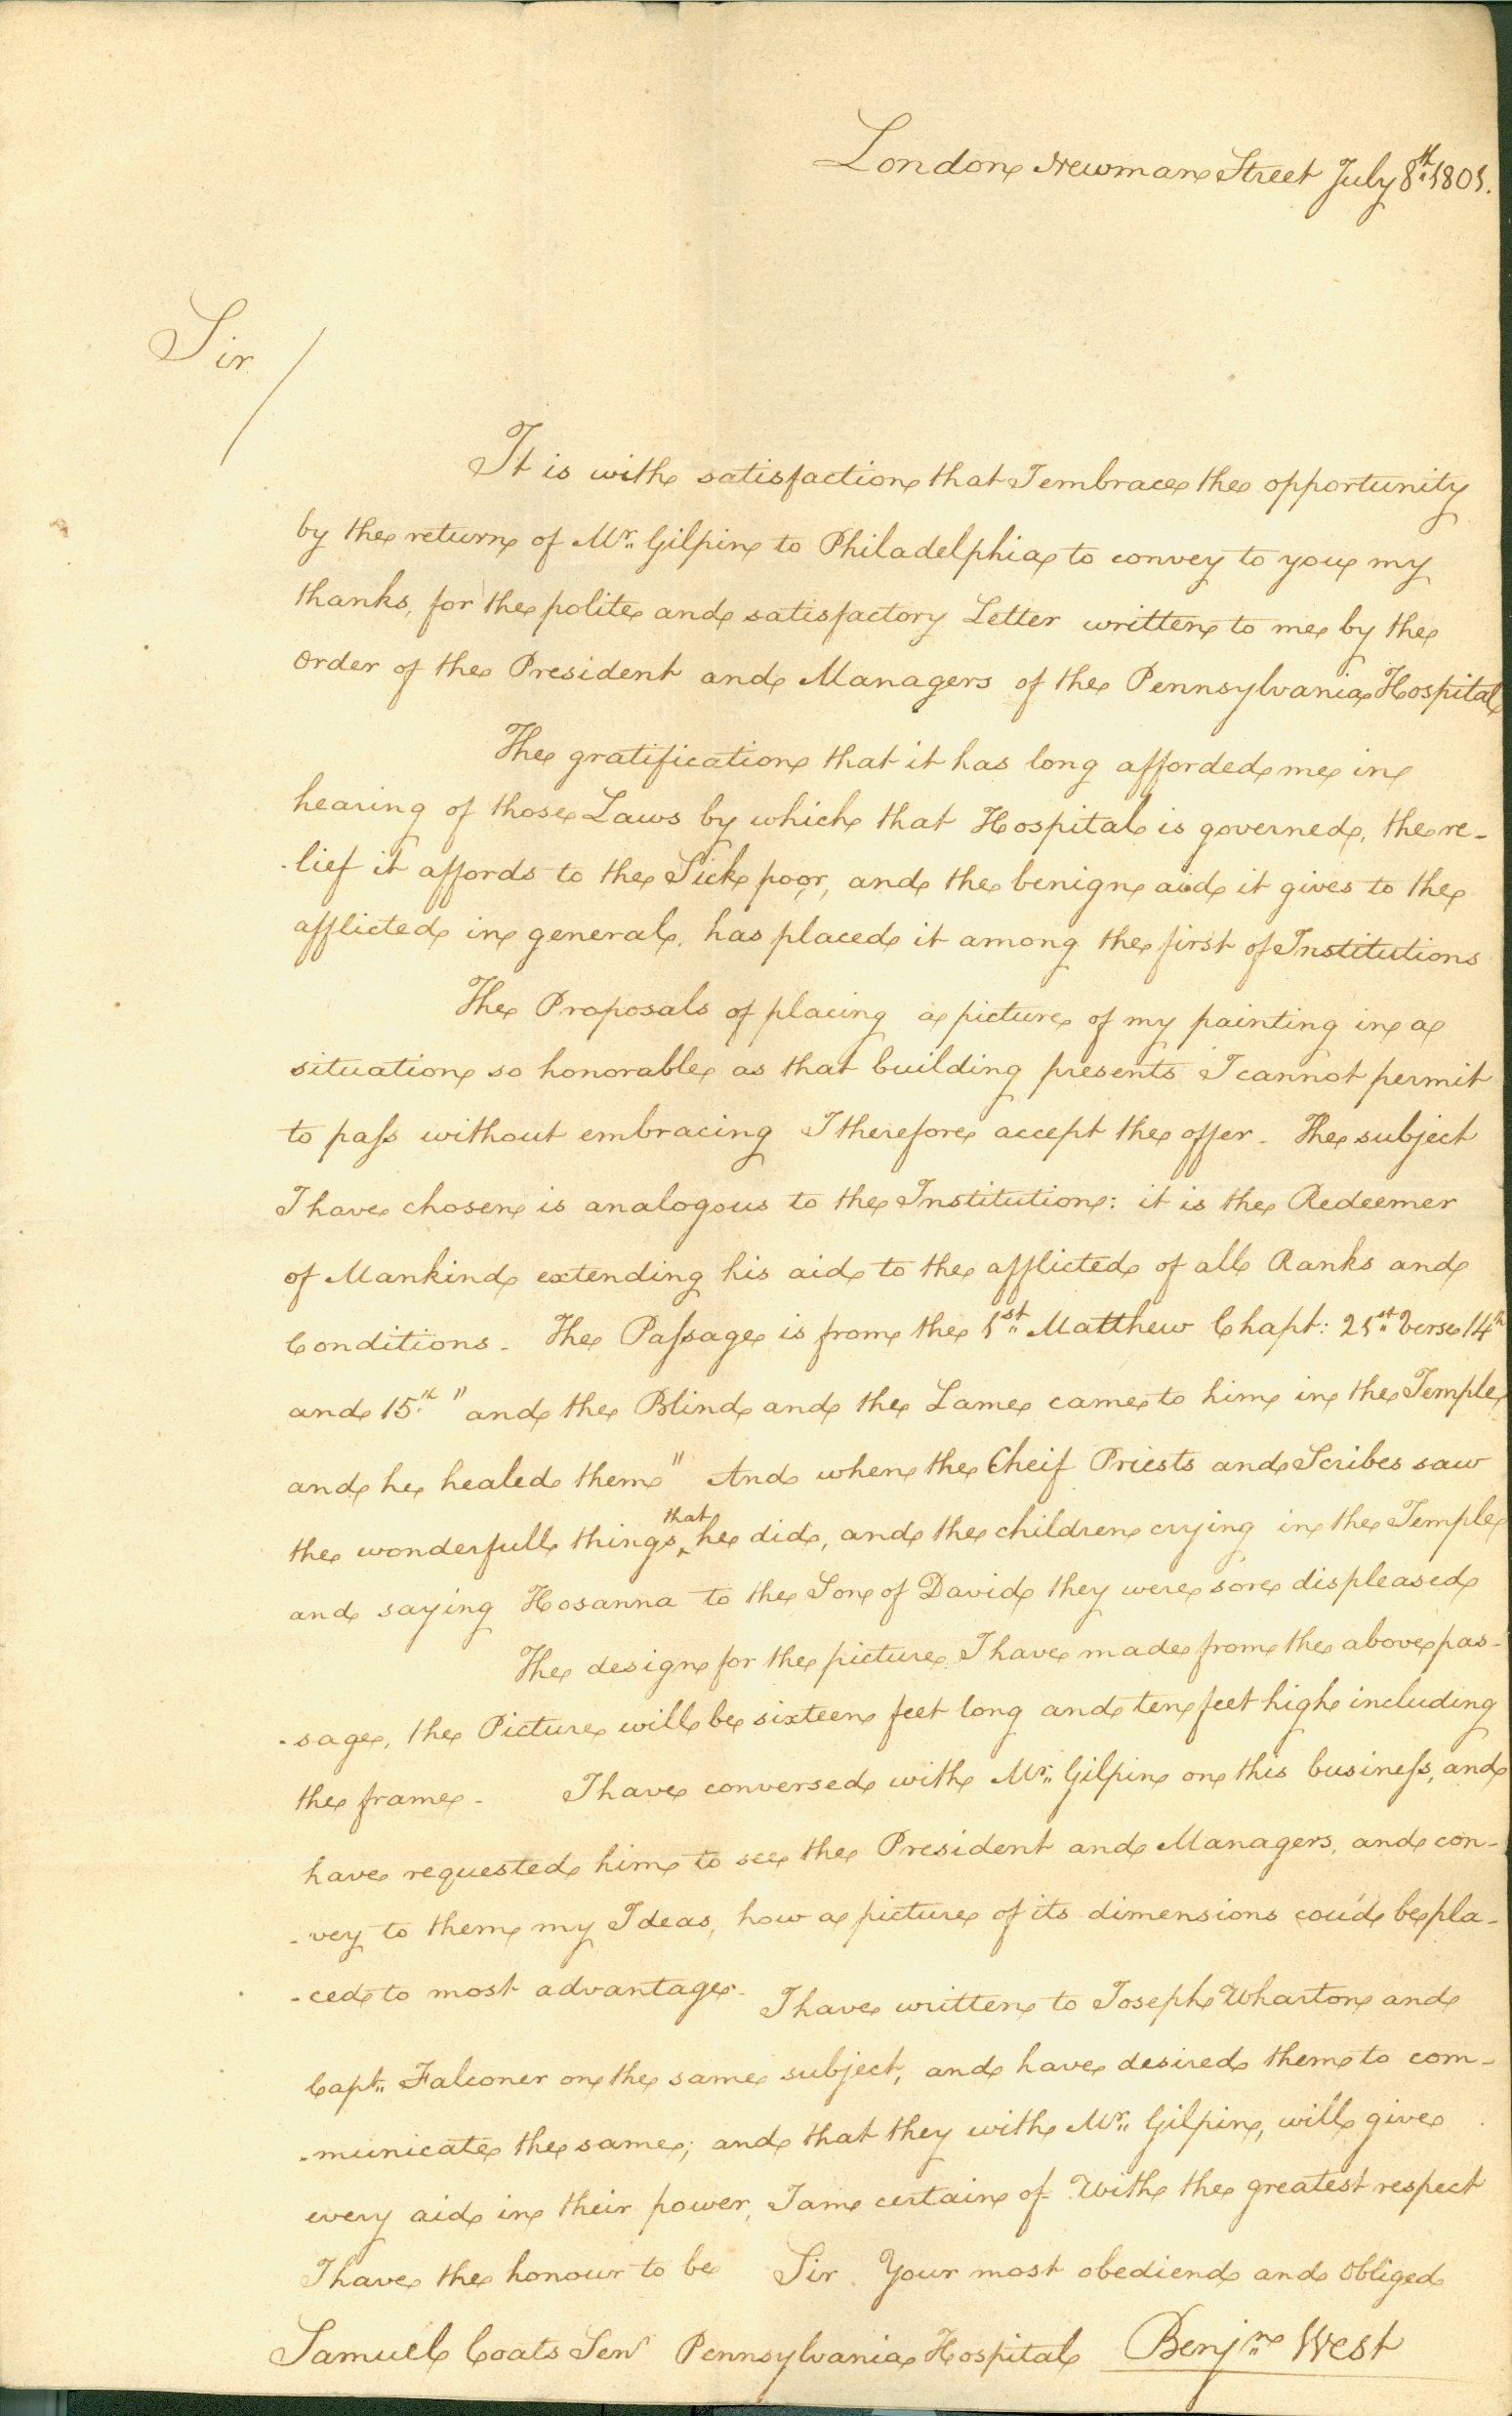 London Newman Street July 8th 1801.
Sir
It is with satisfaction that I embrace the opportunity
by the return of Mr. Gilpin to Philadelphia to convey to you my
thanks, for the polite and satisfactory Letter written to me by the
order of the President and Managers of the Pennsylvania Hospital
The gratification that it has long afforded me in
hearing of those Laws by which that Hospital is governed, the re-
-lief it affords to the Sick poor, and the benign aid it gives to the
afflicted in general, has placed it among the first of Institutions
The Proposals of placing a picture of my painting in a
situation so honorable as that building presents I cannot permit
to paſs without embracing I therefore accept the offer - The subject
I have chosen is analogous to the Institution: it is the Redeemer
of Mankind extending his aid to the afflicted of all Ranks and
Conditions - The Paſsage is from the 1st Matthew Chapt: 21st Verse 14th
and 15th "and the Blind and the Lame came to him in the Temple
and he healed them" And when the Cheif Priests and Scribes saw
the wonderfull things that he did, and the children crying in the Temple
and saying Hosanna to the Son of David they were sore displeased
The design for the picture I have made from the above pas-
-sage, the Picture will be sixteen feet long and ten feet high including
the frame - I have conversed with Mr. Gilpin on this busineſs, and
have requested him to see the President and Managers, and con-
-vey to them my Ideas, how a picture of its dimensions cou'd be pla-
-ced to most advantage - I have written to Joseph Wharton and
Capt. Falconer on the same subject, and have desired them to com-
-municate the same; and that they with Mr. Gilpin, will give
every aid in their power, I am certain of - With the greatest respect
I have the honour to be Sir Your most obediend and Obliged
Samuel Coats Senr Pennsylvania Hospital Benjn. West